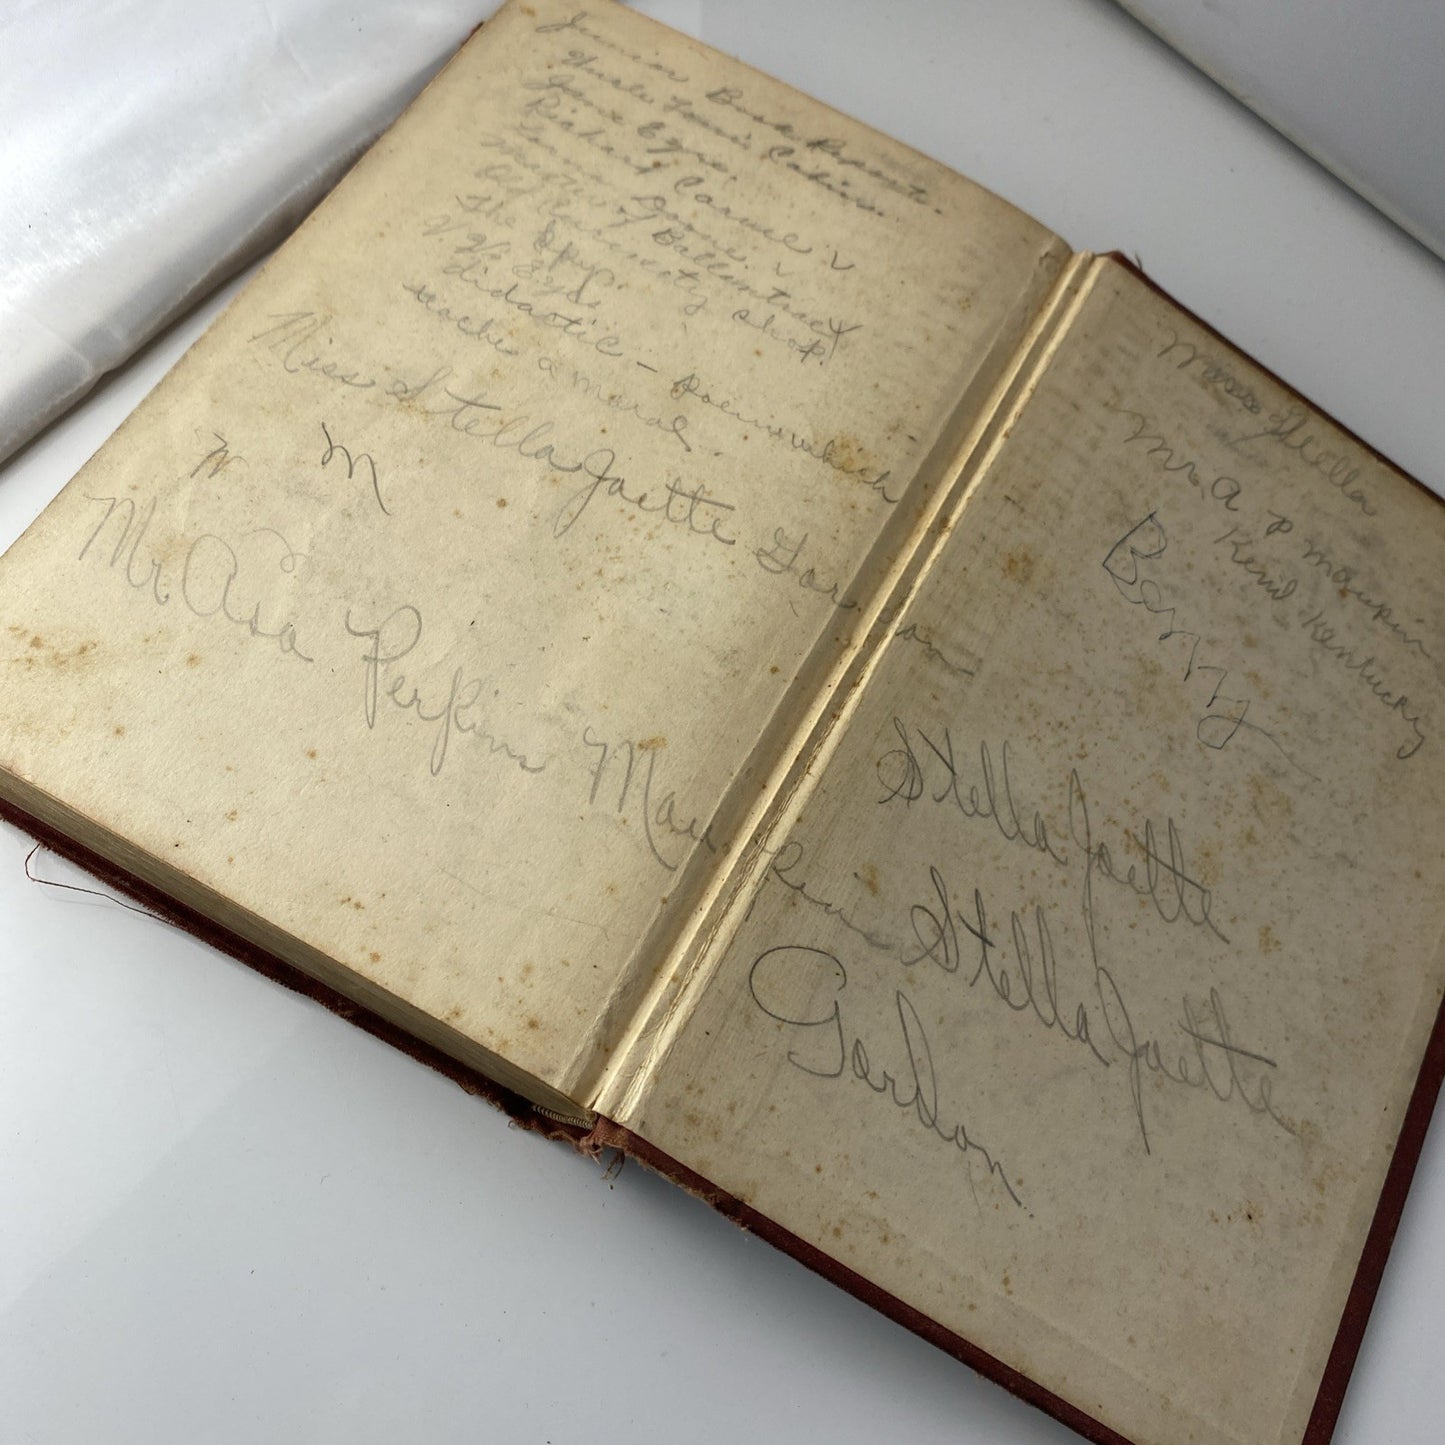 Junior Book Reports.
Uncle Tom's Cabin.
Jane Eyre.
Richard Carvel ✓
Lorna Doone ✓
Master of Ballantrae ✓
Old Curiosity Shop.
The Spy.
V. V. Eyes
didactic - poem which
teache a moral.
Miss Stella Joette Gordon
M M
Mr. Asa Perkins Maupin
Miss Stella
Mr. A P Maupin
Kentucky
Stella Joette
Stella Joette
Gordon